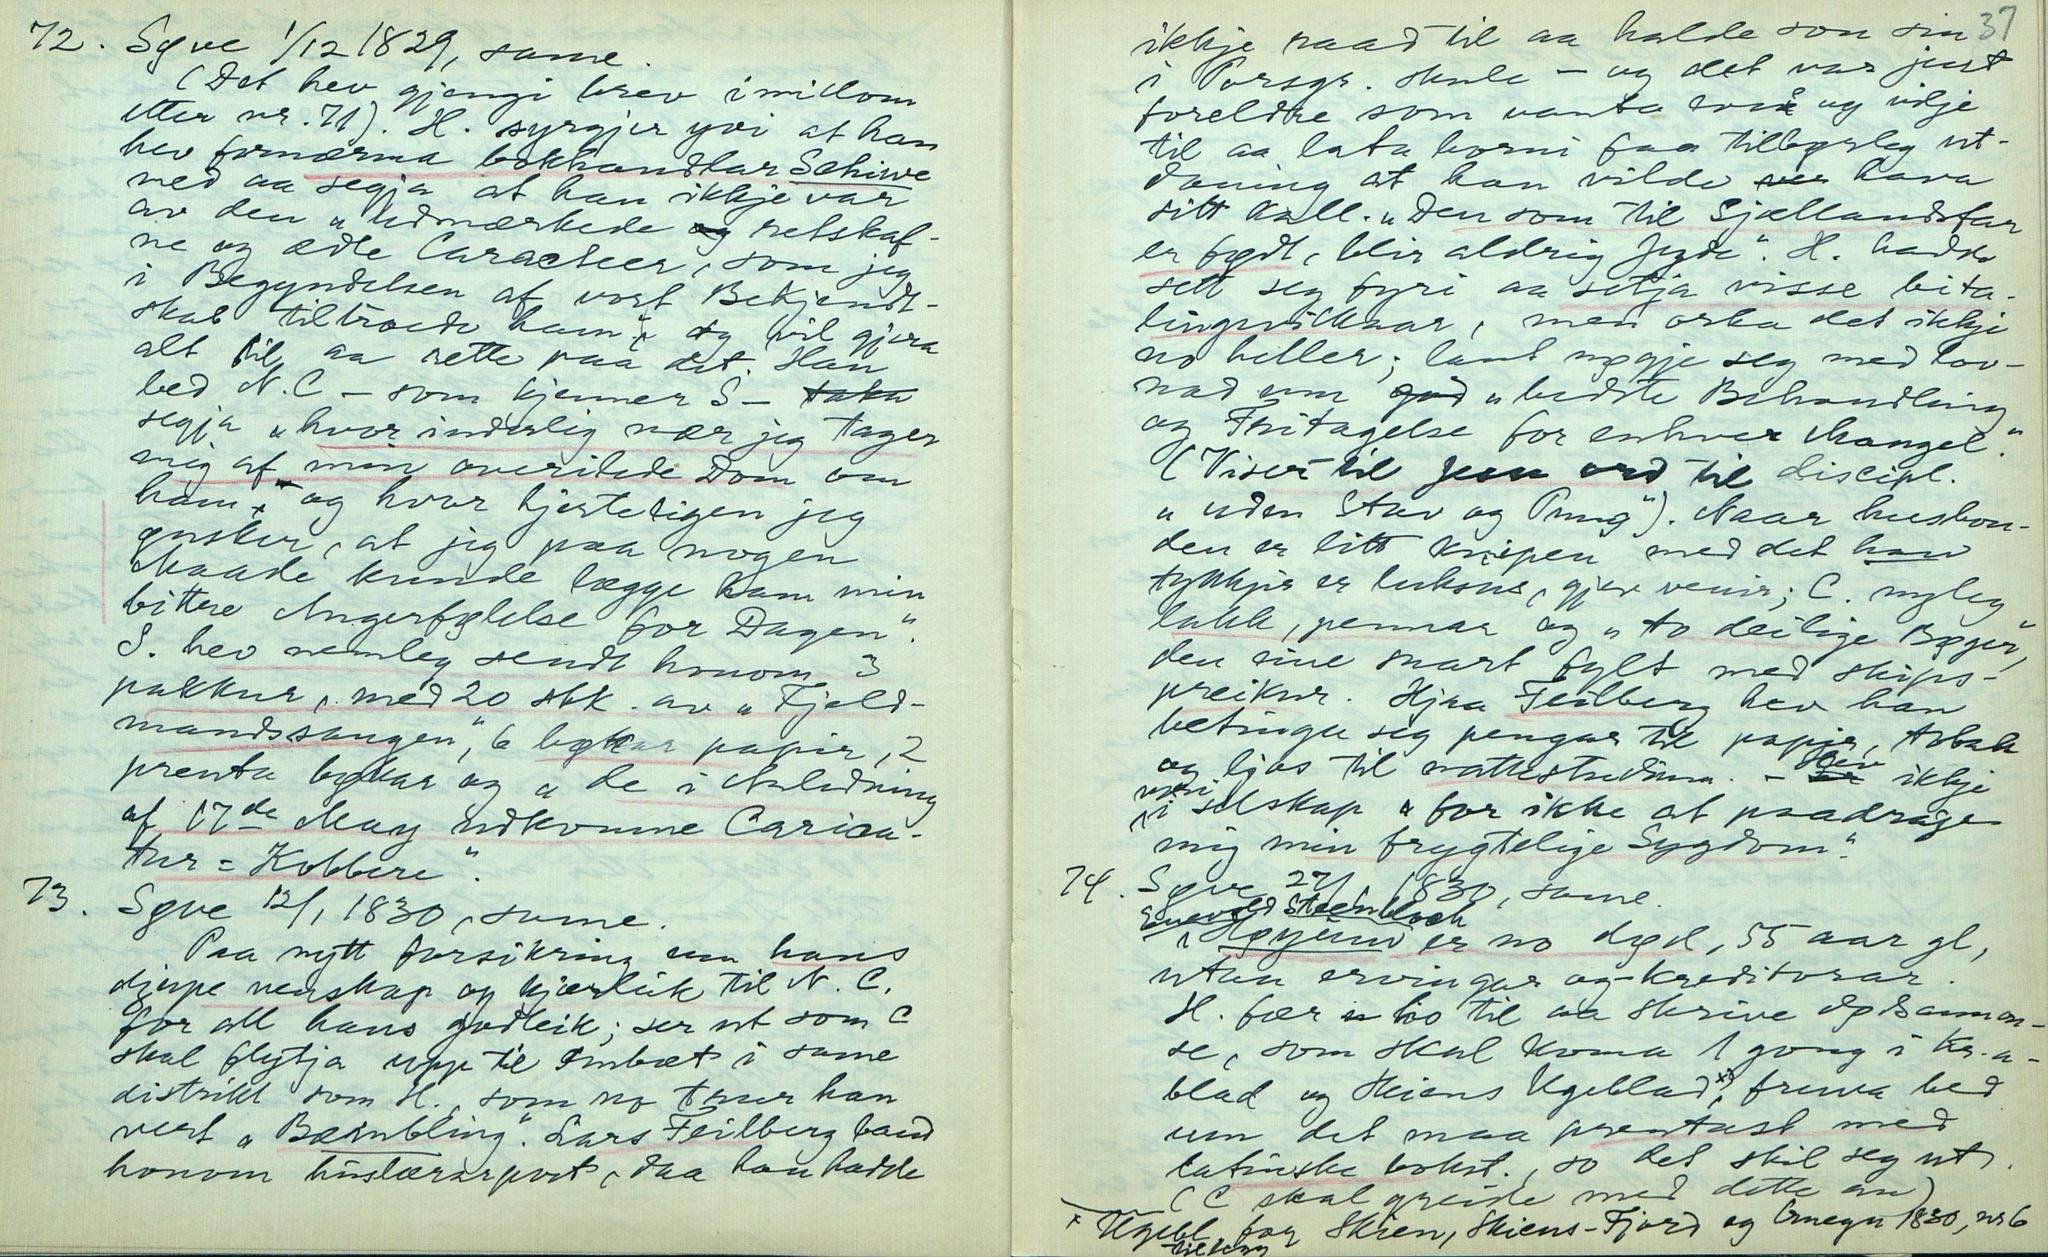 72. Søve 1/12 1829, same.
(Det hev gjengi brev imillom
etter nr. 71). H. syrgjer yvi at han
hev fornærma bokhandlar Schiwe
med aa segja at han ikkje var
av den "udmærkede og retskaf-
ne og ædle Caracteer, som jeg
i Begyndelsen af vort Bekjendt-
skab tiltroede ham", og vil gjera
alt til aa rette paa det. Han
bed N.C – som kjenner S – taka
segja "hvor inderlig nær jeg tager
mig af min overilede Dom om
ham, og hvor hjerteligen jeg
ønsker, at jeg paa nogen
Maade kunde lægge ham min
bittre Angerfølelse for Dagen".
S. hev nemleg sendt honom 3
pakkur, med 20 stk. av "Fjeld-
mandssangen", 6 bøkar papir, 2
prenta bøkar og "de i Anledning
af 17de May udkomne Carica-
tur=Kobbere".
73. Søve 12/1 1830, same.
Paa nytt forsikring um hans
djupe venskap og kjærleik til N.C.
for all hans godleik; ser ut som C
skal flytja upp til embæt i same
distrikt som H., som no trur han
vert "Bærnbling". Lars Feilberg baud
honom huslærarpost, daa han hadde
37
ikkje raad til aa halde son sin
i Porsgr. skule – og det var just
foreldre som vanta raad og vilje
til aa lata borni faa tilbørleg ut-
daning at han vilde hava
sitt kall. "Den som til Sjællandsfar
er født, blir aldrig Jyde". H. hadde
sett seg fyri aa setja visse beta-
lingsvilkaar, men orka det ikkje
no heller; laut nøgje seg med lov-
nad um god "bedste Behandling
og Fritagelse for enhver Mangel."
(Viser til Jesu ord til discipl.
"uden Stav og Pung"). Naar husbon-
den er litt knipen med det han
tykkjer er luksus, gjev venir; C. nyleg
lakk, pennar og "to deilige Bøger",
den eine snart fylt med skips-
preikur. Hjaa Feilberg hev han
betinga seg pengar til papir, tobak
og ljos til nattestudium. – Hev ikkje
vori
i selskap "for ikke at paadrage
mig min frygtelige Sygdom".
74. Søve 27/1 1830, same.
Enevold Steenbloch
i Høyerud er no død, 55 aar gl,
utan ervingar og kreditorar.
H. fær bo til aa skrive dødsannon-
se, som skal koma 1 gong i Kr.a-
blad og Skiens Ugeblad,x) fruva bed
um det maa prentast med
latinske bokst., so det skil seg ut.
(C skal greide med dette an)
x Ugebl. for Skien, Skiens-Fjord og Omegn 1830, nr 6
tillegg